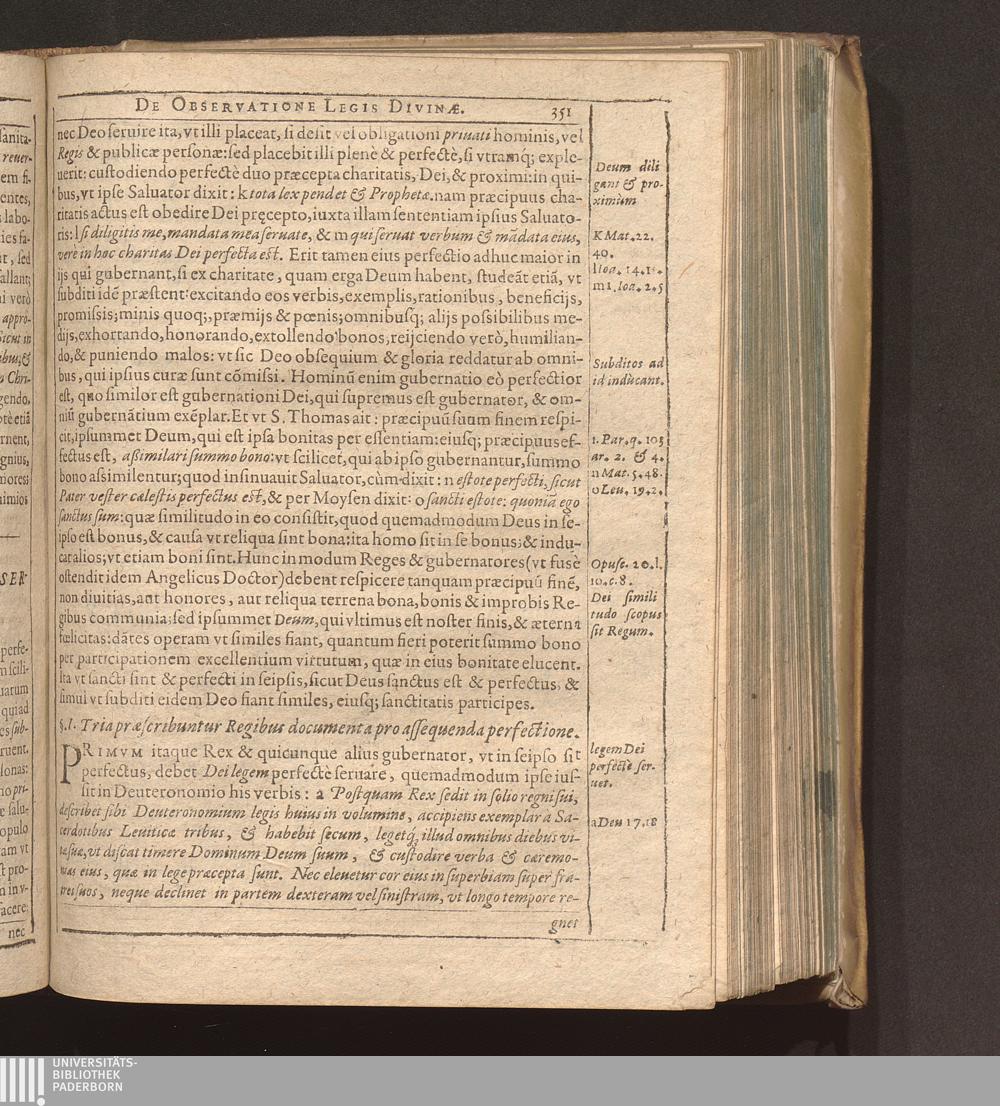 DE OBSERVATIONE LEGIS DIVINÆ. 351
nec Deo seruire ita, vt illi placeat, si desit vel obligationi priuati hominis, vel
Regis & publicæ personæ: sed placebit illi plenè & perfectè, si vtramq; exple-
uerit: custodiendo perfectè duo præcepta charitatis, Dei, & proximi: in qui-
bus, vt ipse Saluator dixit: k tota lex pendet & Prophetæ. nam præcipuus cha-
ritatis actus est obedire Dei pręcepto, iuxta illam sententiam ipsius Saluato-
ris: l si diligitis me, mandata mea seruate, & m qui seruat verbum & mãdata eius,
verè in hoc charitas Dei perfecta est. Erit tamen eius perfectio adhuc maior in
ijs qui gubernant, si ex charitate, quam erga Deum habent, studeãt etiã, vt
subditi idẽ præstent: excitando eos verbis, exemplis, rationibus, beneficijs,
promissis; minis quoq;, præmijs & pœnis; omnibusq; alijs possibilibus me-
dijs, exhortando, honorando, extollendo bonos, reijciendo verò, humilian-
do, & puniendo malos: vt sic Deo obsequium & gloria reddatur ab omni-
bus, qui ipsius curæ sunt cõmissi. Hominũ enim gubernatio eò perfectior
est, quo similor est gubernationi Dei, qui supremus est gubernator, & om-
niũ gubernãtium exẽplar. Et vt S. Thomas ait: præcipuũ suum finem respi-
cit, ipsummet Deum, qui est ipsa bonitas per essentiam: eiusq; præcipuus ef-
fectus est, assimilari summo bono: vt scilicet, qui ab ipso gubernantur, summo
bono assimilentur; quod insinuauit Saluator, cùm dixit: n estote perfecti, sicut
Pater vester cælestis perfectus est, & per Moysen dixit: o sancti estote: quoniã ego
sanctus sum: quæ similitudo in eo consistit, quod quemadmodum Deus in se-
ipso est bonus, & causa vt reliqua sint bona: ita homo sit in se bonus; & indu-
cat alios; vt etiam boni sint. Hunc in modum Reges & gubernatores (vt fusè
ostendit idem Angelicus Doctor) debent respicere tanquam præcipuũ finẽ,
non diuitias, aut honores, aut reliqua terrena bona, bonis & improbis Re-
gibus communia; sed ipsummet Deum, qui vltimus est noster finis, & æterna
fœlicitas: dãtes operam vt similes fiant, quantum fieri poterit summo bono
per participationem excellentium virtutum, quæ in eius bonitate elucent.
Ita vt sancti sint & perfecti in seipsis, sicut Deus sanctus est & perfectus, &
simul vt subditi eidem Deo fiant similes, eiusq; sanctitatis participes.
§. I. Tria præscribuntur Regibus documenta pro assequenda perfectione.
PRIMVM itaque Rex & quicunque alius gubernator, vt in seipso sit
perfectus, debet Dei legem perfectè seruare, quemadmodum ipse ius-
sit in Deuteronomio his verbis: a Postquam Rex sedit in solio regni sui,
describet sibi Deuteronomium legis huius in volumine, accipiens exemplar à Sa-
cerdotibus Leuiticæ tribus, & habebit secum, legetq́; illud omnibus diebus vi-
tæ suæ, vt discat timere Dominum Deum suum, & custodire verba & cæremo-
nias eius, quæ in lege præcepta sunt. Nec eleuetur cor eius in superbiam super fra-
tres suos, neque declinet in partem dexteram vel sinistram, vt longo tempore re-
gnet
Deum dili
gant & pro-
ximum
K Mat. 22.
40.
l Ioa. 14. 15.
m 1. Ioa. 2. 5
Subditos ad
id inducant.
1. Par. q. 103
ar. 2. & 4.
n Mat. 5. 48.
o Leu. 19. 2.
Opusc. 20. l.
10. c. 8.
Dei simili
tudo scopus
sit Regum.
legem Dei
perfectè ser-
uet.
a Deu 17. 18
sanita-
reuer-
em fi-
entes,
labo-
ies fa-
, sed
fallant;
i verò
appro-
Sicut in
ibus, &
Chri-
gendo,
otè etiã
rnent,
gnius,
mores;
imios
SER-
perfe-
m scili-
uarum
quiad
es sub-
ruent.
sonas:
no pri-
e salu-
opulo
am vt
st pro-
n in v-
facere:
nec
UNIVERSITÄTS-
BIBLIOTHEK
PADERBORN